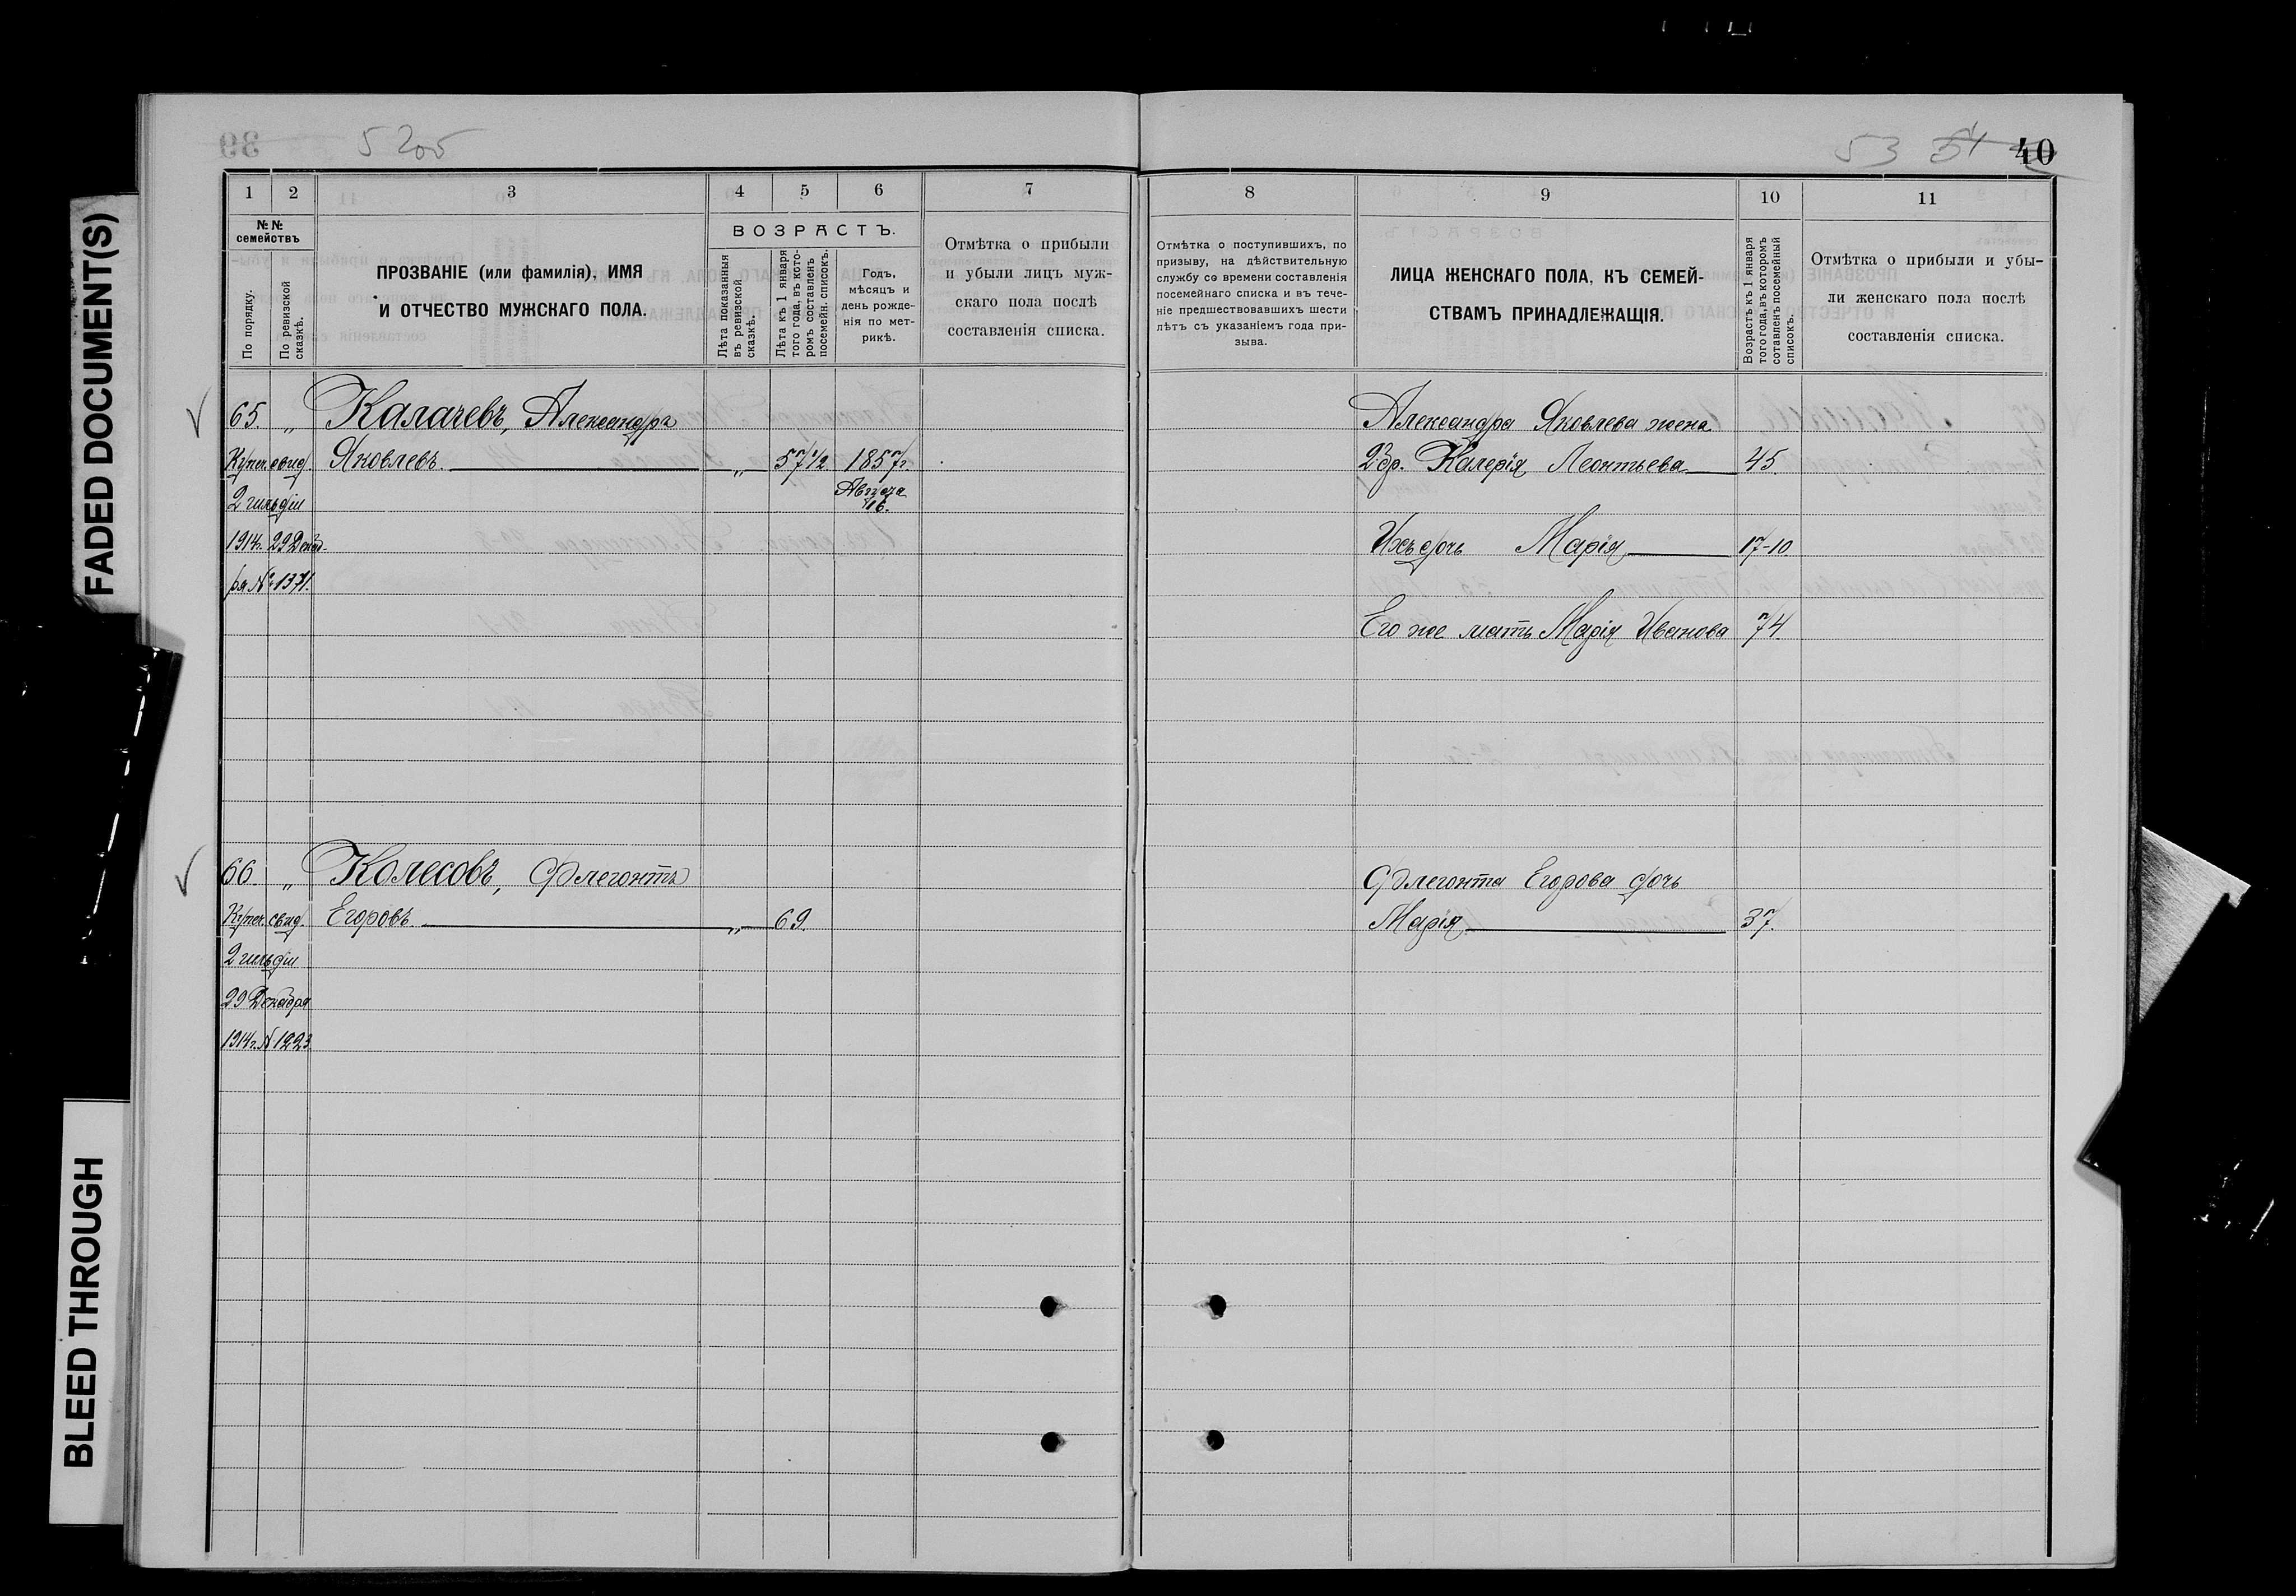 FADED DOCUMENT(S)
BLEED THROUGH
39
52об
53 54 40
1 2 3 4 5 6 7
№№
семействъ
По порядку.
По ревизской
сказкѣ.
ПРОЗВАНІЕ (или фамилія), ИМЯ
И ОТЧЕСТВО МУЖСКАГО ПОЛА.
ВОЗРАСТЪ.
Лѣта показанныя
въ ревизской
сказкѣ.
Лѣта къ 1 января
того года, въ кото-
ромъ составленъ
посемейн. списокъ.
Годъ,
мѣсяцъ и
день рожде-
нія по мет-
рикѣ.
Отмѣтка о прибыли
и убыли лицъ муж-
скаго пола послѣ
составленія списка.
65. „ Калачевъ, Александръ
Купеч. свид. Яковлевъ. „ 57 1/2 1857 г.
2 гильдіи Августа
16.
1914 г. 29 Декаб-
ря № 1371.
66. „ Колесовъ, Флегонтъ
Купеч. свид. Егоровъ. „ 69.
2 гильдіи
29 Декабря
1914 г. № 1223
8 9 10 11
Отмѣтка о поступившихъ, по
призыву, на дѣйствительную
службу со времени составленія
посемейнаго списка и въ тече-
ніе предшествовавшихъ шести
лѣтъ съ указаніемъ года при-
зыва.
ЛИЦА ЖЕНСКАГО ПОЛА, КЪ СЕМЕЙ-
СТВАМЪ ПРИНАДЛЕЖАЩІЯ.
Возрастъ къ 1 января
того года, въ которомъ
сотавленъ посемейный
списокъ.
Отмѣтка о прибыли и убы-
ли женскаго пола послѣ
составленія списка.
Александра Яковлева жена
2 бр. Калерія Леонтьева 45
Ихъ дочь Марія 17-10
Его же мать Марія Иванова 74.
Флегонта Егорова дочь
Марія 37.